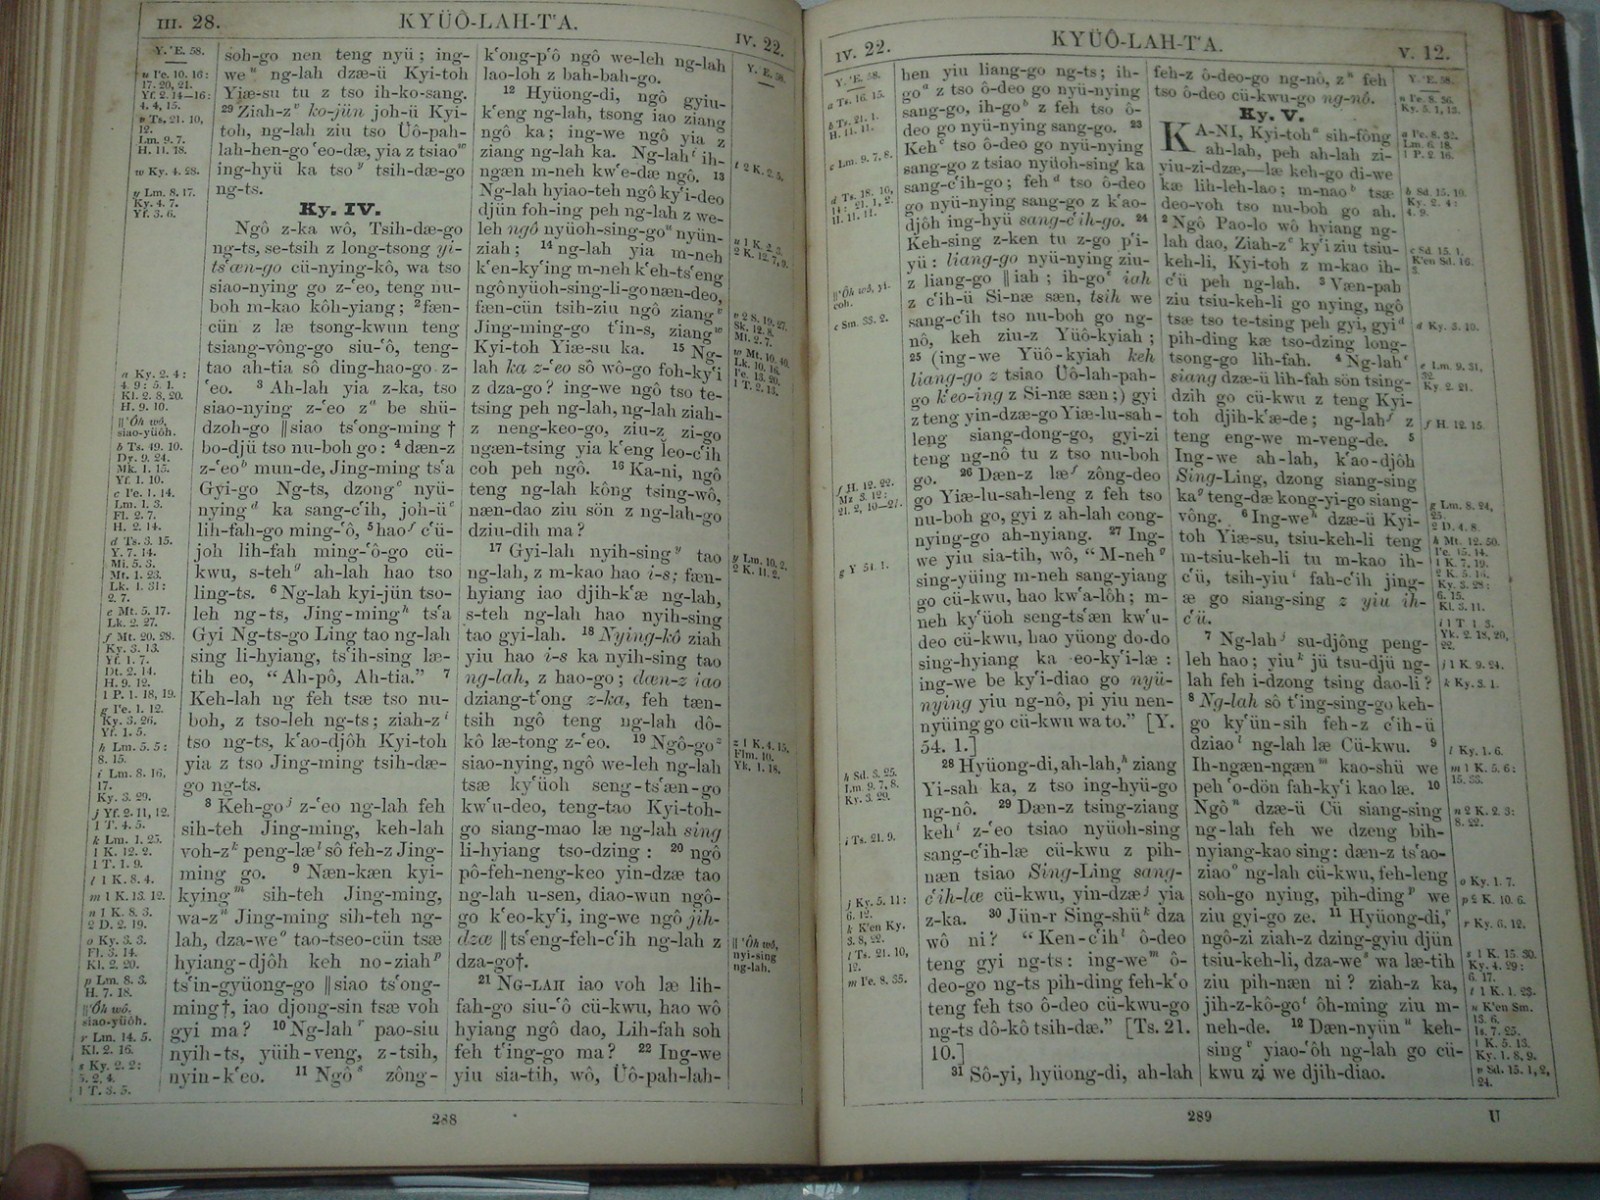 III. 28.
KYÜÔ-LAH-T'A.
IV. 22.
Y. 'E. 58.
u I'e. 10. 16:
17. 20, 21.
Yf. 2. 14-16:
4. 4, 15.
v Ts. 21. 10,
12.
Lm. 9. 7.
H. 11. 18.
w Ky. 4. 28.
y Lm. 8. 17.
Ky. 4. 7.
Yf. 3. 6.
a Ky. 2. 4:
4. 9: 5. 1.
Kl. 2. 8, 20.
H. 9. 10.
||'Ôh wô,
siao-yüôh.
b Ts. 49. 10.
Dy. 9. 24.
Mk. 1. 15.
Yf. 1. 10.
c I'e. 1. 14.
Lm. 1. 3.
Fl. 2. 7.
H. 2. 14.
d Ts. 3. 15.
Y. 7. 14.
Mi. 5. 3.
Mt. 1. 23.
Lk. 1. 31:
2. 7.
e Mt. 5. 17.
Lk. 2. 27.
f Mt. 20. 28.
Ky. 3. 13.
Yf. 1. 7.
Dt. 2. 14.
H. 9. 12.
1 P. 1. 18, 19.
g I'e. 1. 12.
Ky. 3. 26.
Yf. 1. 5.
h Lm. 5. 5:
8. 15.
i Lm. 8. 16,
17.
Ky. 3. 29.
j Yf. 2. 11, 12.
1 T. 4. 5.
k Lm. 1. 25.
1 K. 12. 2.
1 T. 1. 9.
l 1 K. 8. 4.
m 1 K. 13. 12.
n 1 K. 8. 3.
2 D. 2. 19.
o Ky. 3. 3.
Fl. 3. 14.
Kl. 2. 20.
p Lm. 8. 3.
H. 7. 18.
||'Ôh wô.
siao-yüôh.
r Lm. 14. 5.
Kl. 2. 16.
s Ky. 2. 2:
5. 2, 4.
1 T. 3. 5.
soh-go nen teng nyü; ing-
we u ng-lah dzæ-ü Kyi-toh
Yiæ-su tu z tso ih-ko-sang.
29 Ziah-z v ko-jün joh-ü Kyi-
toh, ng-lah ziu tso Üô-pah-
lah-hen-go 'eo-dæ, yia z tsiao w
ing-hyü ka tso y tsih-dæ-go
ng-ts.
Ky. IV.
Ngô z-ka wô, Tsih-dæ-go
ng-ts, se-tsih z long-tsong yi-
ts'æn-go cü-nying-kô, wa tso
siao-nying go z-'eo, teng nu-
boh m-kao kôh-yiang; 2 fæn-
cün z læ tsong-kwun teng
tsiang-vông-go siu-'ô, teng-
tao ah-tia sô ding-hao-go z-
'eo. 3 Ah-lah yia z-ka, tso
siao-nying z-'eo z a be shü-
dzoh-go ||siao ts'ong-ming †
bo-djü tso nu-boh go: 4 dæn-z
z-'eo b mun-de, Jing-ming ts'a
Gyi-go Ng-ts, dzong c nyü-
nying d ka sang-c'ih, joh-ü e
lih-fah-go ming-'ô, 5 hao f c'ü-
joh lih-fah ming-'ô-go cü-
kwu, s-teh g ah-lah hao tso
ling-ts. 6 Ng-lah kyi-jün tso-
leh ng-ts, Jing-ming h ts'a
Gyi Ng-ts-go Ling tao ng-lah
sing li-hyiang, ts'ih-sing læ-
tih eo, “Ah-pô, Ah-tia.” 7
Keh-lah ng feh tsæ tso nu-
boh, z tso-leh ng-ts; ziah-z i
tso ng-ts, k'ao-djôh Kyi-toh
yia z tso Jing-ming tsih-dæ-
go ng-ts.
8 Keh-go j z-'eo ng-lah feh
sih-teh Jing-ming, keh-lah
voh-z k peng-læ l sô feh-z Jing-
ming go. 9 Næn-kæn kyi-
kying m sih-teh Jing-ming,
wa-z n Jing-ming sih-teh ng-
lah, dza-we o tao-tseo-cün tsæ
hyiang-djôh keh no-ziah p
ts'in-gyüong-go ||siao ts'ong-
ming†, iao djong-sin tsæ voh
gyi ma? 10 Ng-lah r pao-siu
nyih-ts, yüih-veng, z-tsih,
nyin-k'eo. 11 Ngô s zông-
k'ong-p'ô ngô we-leh ng-lah
lao-loh z bah-bah-go.
12 Hyüong-di, ngô gyiu-
k'eng ng-lah, tsong iao ziang
ngô ka; ing-we ngô yia z
ziang ng-lah ka. Ng-lah t ih-
ngæn m-neh kw'e-dæ ngô. 13
Ng-lah hyiao-teh ngô ky'i-deo
djün foh-ing peh ng-lah z we-
leh ngô nyüoh-sing-go u nyün-
ziah; 14 ng-lah yia m-neh
k'en-ky'ing m-neh k'eh-ts'eng
ngô nyüoh-sing-li-go næn-deo,
fæn-cün tsih-ziu ngô ziang v
Jing-ming-go t'in-s, ziang w
Kyi-toh Yiæ-su ka. 15 Ng-
lah ka z-'eo sô wô-go foh-ky'i
z dza-go? ing-we ngô tso te-
tsing peh ng-lah, ng-lah ziah-
z neng-keo-go, ziu-z zi-go
ngæn-tsing yia k'eng leo-c'ih
coh peh ngô. 16 Ka-ni, ngô
teng ng-lah kông tsing-wô,
næn-dao ziu sön z ng-lah-go
dziu-dih ma?
17 Gyi-lah nyih-sing y tao
ng-lah, z m-kao hao i-s; fæn-
hyiang iao djih-k'æ ng-lah,
s-teh ng-lah hao nyih-sing
tao gyi-lah. 18 Nying-kô ziah
yiu hao i-s ka nyih-sing tao
ng-lah, z hao-go; dæn-z iao
dziang-t'ong z-ka, feh tæn-
tsih ngô teng ng-lah dô-
kô læ-tong z-'eo. 19 Ngô-go z
siao-nying, ngô we-leh ng-lah
tsæ ky'üoh seng-ts'æn-go
kw'u-deo, teng-tao Kyi-toh-
go siang-mao læ ng-lah sing
li-hyiang tso-dzing: 20 ngô
pô-feh-neng-keo yin-dzæ tao
ng-lah u-sen, diao-wun ngô-
go k'eo-ky'i, ing-we ngô jih-
dzæ ||ts'eng-feh-c'ih ng-lah z
dza-go†.
21 NG-LAH iao voh læ lih-
fah-go siu-'ô cü-kwu, hao wô
hyiang ngô dao, Lih-fah soh
feh t'ing-go ma? 22 Ing-we
yiu sia-tih, wô, Üô-pah-lah-
Y. 'E. 58.
t 2 K. 2. 5.
u 1 K. 2. 3.
2 K. 12. 7, 9.
v 2 S. 19. 27.
Sk. 12. 8.
Ml. 2. 7.
w Mt. 10. 40.
Lk. 10. 16.
I'e. 13. 20.
1 T. 2. 13.
y Lm. 10. 2.
2 K. 11. 2.
z 1 K. 4. 15.
Flm. 10.
Yk. 1. 18.
||'Ôh wô,
nyi-sing
ng-lah.
288
IV. 22.
KYÜÔ-LAH-T'A.
V. 12.
Y. 'E. 58.
a Ts. 16. 15.
b Ts. 21. 1.
H. 11. 11.
c Lm. 9. 7, 8.
d Ts. 18. 10,
14: 21. 1, 2.
H. 11. 11.
||'Ôh wô, yi-
coh.
e Sm. 33. 2.
f H. 12. 22.
Mz 3. 12:
21. 2, 10-27.
g Y 54. 1.
h Sd. 3. 25.
Lm. 9. 7, 8.
Ky. 3. 29.
i Ts. 21. 9.
j Ky. 5. 11:
6. 12.
k K'en Ky.
3. 8, 22.
l Ts. 21. 10,
12.
m I'e. 8. 35.
hen yiu liang-go ng-ts; ih-
go a z tso ô-deo go nyü-nying
sang-go, ih-go b z feh tso ô-
deo go nyü-nying sang-go. 23
Keh c tso ô-deo go nyü-nying
sang-go z tsiao nyüoh-sing ka
sang-c'ih-go; feh d tso ô-deo
go nyü-nying sang-go z k'ao-
djôh ing-hyü sang-c'ih-go. 24
Keh-sing z-ken tu z-go p'i-
yü: liang-go nyü-nying ziu-
z liang-go || iah; ih-go e iah
z c'ih-ü Si-næ sæn, tsih we
sang-c'ih tso nu-boh go ng-
nô, keh ziu-z Yüô-kyiah;
25 (ing-we Yüô-kyiah keh
liang-go z tsiao Üô-lah-pah-
go k'eo-ing z Si-næ sæn;) gyi
z teng yin-dzæ-go Yiæ-lu-sah-
leng siang-dong-go, gyi-zi
teng ng-nô tu z tso nu-boh
go. 26 Dæn-z læ f zông-deo
go Yiæ-lu-sah-leng z feh tso
nu-boh go, gyi z ah-lah cong-
nying-go ah-nyiang. 27 Ing-
we yiu sia-tih, wô, “M-neh g
sing-yüing m-neh sang-yiang
go cü-kwu, hao kw'a-lôh; m-
neh ky'üoh seng-ts'æn kw'u-
deo cü-kwu, hao yüong do-do
sing-hyiang ka eo-ky'i-læ:
ing-we be ky'i-diao go nyü-
nying yiu ng-nô, pi yiu nen-
nyüing go cü-kwu wa to.” [Y.
54. 1.]
28 Hyüong-di, ah-lah, h ziang
Yi-sah ka, z tso ing-hyü-go
ng-nô. 29 Dæn-z tsing-ziang
keh i z-'eo tsiao nyüoh-sing
sang-c'ih-læ cü-kwu z pih-
næn tsiao Sing-Ling sang-
c'ih-læ cü-kwu, yin-dzæ j yia
z-ka. 30 Jün-r Sing-shü k dza
wô ni? “Ken-c'ih l ô-deo
teng gyi ng-ts: ing-we m ô-
deo-go ng-ts pih-ding feh-k'o
teng feh tso ô-deo cü-kwu-go
ng-ts dô-kô tsih-dæ.” [Ts. 21.
10.]
31 Sô-yi, hyüong-di, ah-lah
feh-z ô-deo-go ng-nô, z n feh
tso ô-deo cü-kwu-go ng-nô.
Ky. V.
KA-NI, Kyi-toh a sih-fông
ah-lah, peh ah-lah zi-
yiu-zi-dzæ,—læ keh-go di-we
kæ lih-leh-lao; m-nao b tsæ
deo-voh tso nu-boh go ah.
2 Ngô Pao-lo wô hyiang ng-
lah dao, Ziah-z c ky'i ziu tsiu-
keh-li, Kyi-toh z m-kao ih-
c'ü peh ng-lah. 3 Væn-pah
ziu tsiu-keh-li go nying, ngô
tsæ tso te-tsing peh gyi, gyi d
pih-ding kæ tso-dzing long-
tsong-go lih-fah. 4 Ng-lah e
siang dzæ-ü lih-fah sön tsing-
dzih go cü-kwu z teng Kyi-
toh djih-k'æ-de; ng-lah f z
teng eng-we m-veng-de. 5
Ing-we ah-lah, k'ao-djôh
Sing-Ling, dzong siang-sing
ka g teng-dæ kong-yi-go siang-
vông. 6 Ing-we h dzæ-ü Kyi-
toh Yiæ-su, tsiu-keh-li teng
m-tsiu-keh-li tu m-kao ih-
c'ü, tsih-yiu i fah-c'ih jing-
æ go siang-sing z yiu ih-
c'ü.
7 Ng-lah j su-djông peng-
leh hao; yiu k jü tsu-djü ng-
lah feh i-dzong tsing dao-li?
8 Ng-lah sô t'ing-sing-go keh-
go ky'ün-sih feh-z c'ih-ü
dziao l ng-lah læ Cü-kwu. 9
Ih-ngæn-ngæn m kao-shü we
peh 'o-dön fah-ky'i kao læ. 10
Ngô n dzæ-ü Cü siang-sing
ng-lah feh we dzeng bih-
nyiang-kao sing: dæn-z ts'ao-
ziao o ng-lah cü-kwu, feh-leng
soh-go nying, pih-ding p we
ziu gyi-go ze. 11 Hyüong-di, r
ngô-zi ziah-z dzing-gyiu djün
tsiu-keh-li, dza-we s wa læ-tih
ziu pih-næn ni? ziah-z ka,
jih-z-kô-go t ôh-ming ziu m-
neh-de. 12 Dæn-nyün u keh-
sing v yiao-'ôh ng-lah go cü-
kwu zi we djih-diao.
Y. 'E. 58.
n I'e. 8. 36.
Ky. 5. 1, 13.
a I'e. 8. 32.
Lm. 6. 18.
1 P. 2. 16.
b Sd. 15. 10.
Ky. 2. 4:
4. 9.
c Sd 15. 1.
K'en Sd. 16.
3.
d Ky. 3. 10.
e Lm. 9. 31,
32.
Ky. 2. 21.
f H. 12. 15
g Lm. 8. 24,
25.
2 D. 4. 8.
h Mt. 12. 50.
I'e. 15. 14.
1 K. 7. 19.
2 K. 5. 14.
Ky. 3. 28:
6. 15.
Kl. 3. 11.
i 1 T 1 3.
Yk. 2. 18, 20,
22.
j 1 K. 9. 24.
k Ky. 3. 1.
l Ky. 1. 6.
m 1 K. 5. 6:
15. 33.
n 2 K. 2. 3:
8. 22.
o Ky. 1. 7.
p 2 K. 10. 6.
r Ky. 6. 12.
s 1 K. 15. 30.
Ky. 4. 29:
6. 17.
t 1 K. 1. 23.
u K'en Sm.
13. 6.
Is. 7. 25.
1 K. 5. 13.
Ky. 1. 8, 9.
v Sd. 15. 1, 2,
24.
289
U